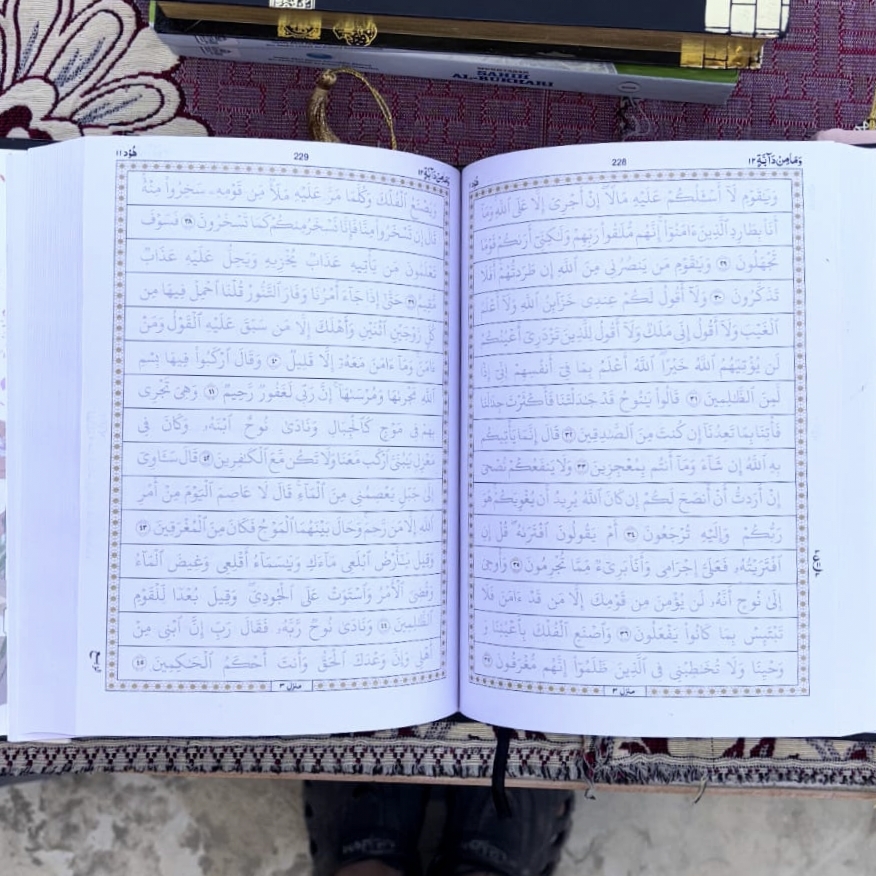 SAHIH
AL-BUKHARI
وَمَا مِنْ دَآبَّةٍ ١٢
228
وَيَٰقَوْمِ لَآ أَسْـَٔلُكُمْ عَلَيْهِ مَالًا ۖ إِنْ أَجْرِىَ إِلَّا عَلَى ٱللَّهِ وَمَآ
أَنَا۠ بِطَارِدِ ٱلَّذِينَ ءَامَنُوٓا۟ إِنَّهُم مُّلَٰقُوا۟ رَبِّهِمْ وَلَٰكِنِّىٓ أَرَىٰكُمْ قَوْمًا
تَجْهَلُونَ ٢٩ وَيَٰقَوْمِ مَن يَنصُرُنِى مِنَ ٱللَّهِ إِن طَرَدتُّهُمْ أَفَلَا
تَذَكَّرُونَ ٣٠ وَلَآ أَقُولُ لَكُمْ عِندِى خَزَآئِنُ ٱللَّهِ وَلَآ أَعْلَمُ
ٱلْغَيْبَ وَلَآ أَقُولُ إِنِّى مَلَكٌ وَلَآ أَقُولُ لِلَّذِينَ تَزْدَرِىٓ أَعْيُنُكُمْ
لَن يُؤْتِيَهُمُ ٱللَّهُ خَيْرًا ۖ ٱللَّهُ أَعْلَمُ بِمَا فِىٓ أَنفُسِهِمْ إِنِّىٓ إِذًا
لَّمِنَ ٱلظَّٰلِمِينَ ٣١ قَالُوا۟ يَٰنُوحُ قَدْ جَٰدَلْتَنَا فَأَكْثَرْتَ جِدَٰلَنَا
فَأْتِنَا بِمَا تَعِدُنَآ إِن كُنتَ مِنَ ٱلصَّٰدِقِينَ ٣٢ قَالَ إِنَّمَا يَأْتِيكُم
بِهِ ٱللَّهُ إِن شَآءَ وَمَآ أَنتُم بِمُعْجِزِينَ ٣٣ وَلَا يَنفَعُكُمْ نُصْحِىٓ
إِنْ أَرَدتُّ أَنْ أَنصَحَ لَكُمْ إِن كَانَ ٱللَّهُ يُرِيدُ أَن يُغْوِيَكُمْ هُوَ
رَبُّكُمْ وَإِلَيْهِ تُرْجَعُونَ ٣٤ أَمْ يَقُولُونَ ٱفْتَرَىٰهُ ۖ قُلْ إِنِ
ٱفْتَرَيْتُهُۥ فَعَلَىَّ إِجْرَامِى وَأَنَا۠ بَرِىٓءٌ مِّمَّا تُجْرِمُونَ ٣٥ وَأُوحِىَ
إِلَىٰ نُوحٍ أَنَّهُۥ لَن يُؤْمِنَ مِن قَوْمِكَ إِلَّا مَن قَدْ ءَامَنَ فَلَا
تَبْتَئِسْ بِمَا كَانُوا۟ يَفْعَلُونَ ٣٦ وَٱصْنَعِ ٱلْفُلْكَ بِأَعْيُنِنَا وَ
وَحْيِنَا وَلَا تُخَٰطِبْنِى فِى ٱلَّذِينَ ظَلَمُوٓا۟ إِنَّهُم مُّغْرَقُونَ ٣٧
منزل ٣
وَمَا مِنْ دَآبَّةٍ ١٢
229
هُوْد ١١
وَيَصْنَعُ ٱلْفُلْكَ وَكُلَّمَا مَرَّ عَلَيْهِ مَلَأٌ مِّن قَوْمِهِۦ سَخِرُوا۟ مِنْهُ
قَالَ إِن تَسْخَرُوا۟ مِنَّا فَإِنَّا نَسْخَرُ مِنكُمْ كَمَا تَسْخَرُونَ ٣٨ فَسَوْفَ
تَعْلَمُونَ مَن يَأْتِيهِ عَذَابٌ يُخْزِيهِ وَيَحِلُّ عَلَيْهِ عَذَابٌ
مُّقِيمٌ ٣٩ حَتَّىٰٓ إِذَا جَآءَ أَمْرُنَا وَفَارَ ٱلتَّنُّورُ قُلْنَا ٱحْمِلْ فِيهَا مِن
كُلٍّ زَوْجَيْنِ ٱثْنَيْنِ وَأَهْلَكَ إِلَّا مَن سَبَقَ عَلَيْهِ ٱلْقَوْلُ وَمَنْ
ءَامَنَ وَمَآ ءَامَنَ مَعَهُۥٓ إِلَّا قَلِيلٌ ٤٠ وَقَالَ ٱرْكَبُوا۟ فِيهَا بِسْمِ
ٱللَّهِ مَجْر۪ىٰهَا وَمُرْسَىٰهَآ إِنَّ رَبِّى لَغَفُورٌ رَّحِيمٌ ٤١ وَهِىَ تَجْرِى
بِهِمْ فِى مَوْجٍ كَٱلْجِبَالِ وَنَادَىٰ نُوحٌ ٱبْنَهُۥ وَكَانَ فِى
مَعْزِلٍ يَٰبُنَىَّ ٱرْكَب مَّعَنَا وَلَا تَكُن مَّعَ ٱلْكَٰفِرِينَ ٤٢ قَالَ سَـَٔاوِىٓ
إِلَىٰ جَبَلٍ يَعْصِمُنِى مِنَ ٱلْمَآءِ قَالَ لَا عَاصِمَ ٱلْيَوْمَ مِنْ أَمْرِ
ٱللَّهِ إِلَّا مَن رَّحِمَ وَحَالَ بَيْنَهُمَا ٱلْمَوْجُ فَكَانَ مِنَ ٱلْمُغْرَقِينَ ٤٣
وَقِيلَ يَٰٓأَرْضُ ٱبْلَعِى مَآءَكِ وَيَٰسَمَآءُ أَقْلِعِى وَغِيضَ ٱلْمَآءُ
وَقُضِىَ ٱلْأَمْرُ وَٱسْتَوَتْ عَلَى ٱلْجُودِىِّ ۖ وَقِيلَ بُعْدًا لِّلْقَوْمِ
ٱلظَّٰلِمِينَ ٤٤ وَنَادَىٰ نُوحٌ رَّبَّهُۥ فَقَالَ رَبِّ إِنَّ ٱبْنِى مِنْ
أَهْلِى وَإِنَّ وَعْدَكَ ٱلْحَقُّ وَأَنتَ أَحْكَمُ ٱلْحَٰكِمِينَ ٤٥
منزل ٣